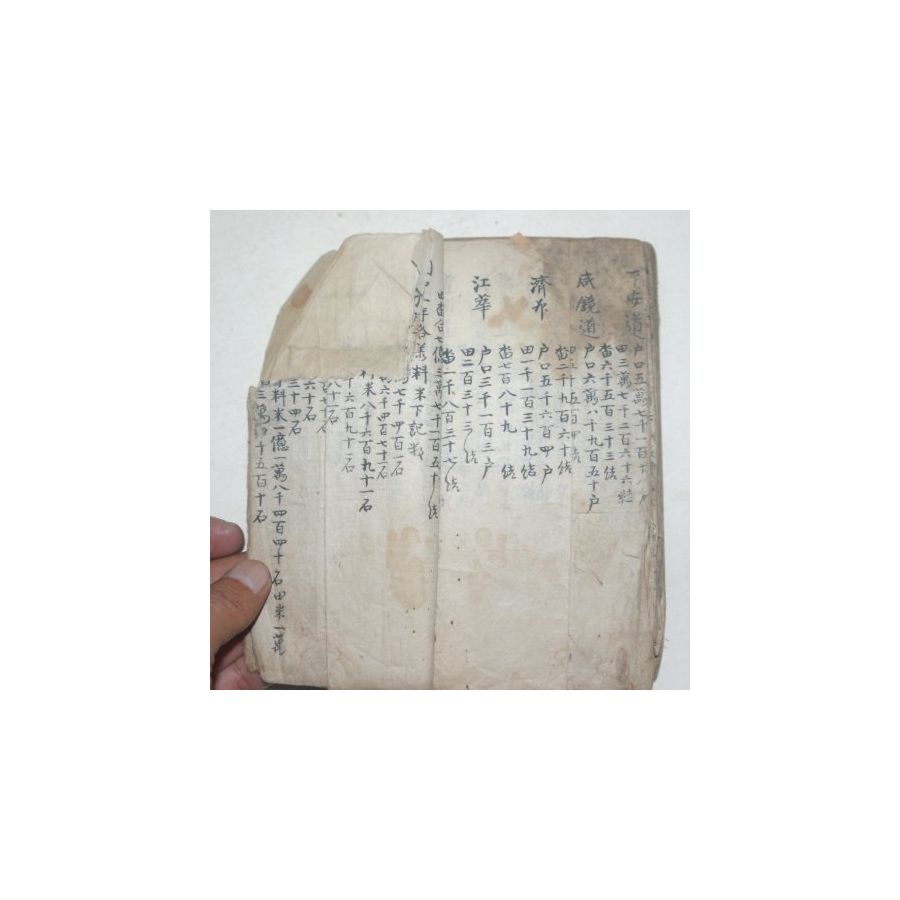 安道 户口五萬七千一百十八户
田三萬七千二百六十六結
畓六千五百三十三結
咸鏡道 户口六萬八千九百五十户
畓二千九百六十結
濟州 户口五千六百四户
田一千一百三十九結
畓七百八十九結
江華 户口三千一百三户
田二百三十三結
畓一千八百三十七結
田畓合七億三萬七千一百五十結
各㨾料米下記數
七千四百一石
六千四百七十一石
米八千六百九十一石
十六百九十一石
八十一石
六十石
三十四石
料米一億一萬八千四百四十石田米一萬
三萬 千五百十石